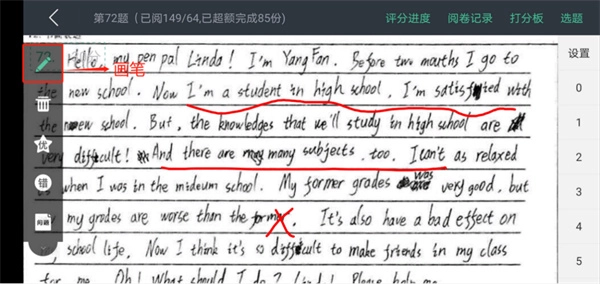 第72题（已阅149/64,已超额完成85份）
评分进度 阅卷记录 打分板 选题
设置
0
1
2
3
4
5
画笔
优
错
问题
Hello, my pen pal Linda! I'm Yang Fan. Before two mouths I go to
the new school. Now I'm a student in high school, I'm satisfied with
the new school. But, the knowledges that we'll study in high school are
very difficult! And there are many subjects, too. I can't as relaxed
when I was in the mideum school. My former grades was very good, but
my grades are worse than the former. It's also have a bad effect on
school life. Now I think it's so difficult to make friends in my class
for me. Oh! What should I do? Please help me